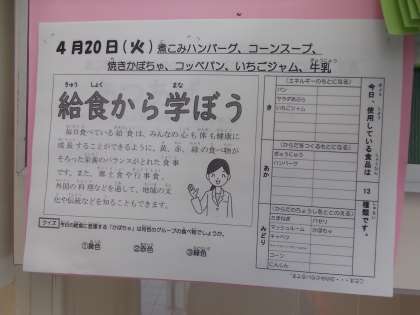 4月20日(火)煮こみハンバーグ、コーンスープ、
焼きかぼちゃ、コッペパン、いちごジャム、牛乳
きゅう しょく まな
給食から学ぼう
毎日食べている給食は、みんなの心も体も健康に
成長することができるように、黄、赤、緑の食べ物が
そろった栄養のバランスがとれた食事
です。また、郷土食や行事食、
外国の料理などを通して、地域の文
化や伝統などを知ることもできます。
クイズ
今日の給食に登場する「かぼちゃ」は何色のグループの食べ物でしょうか。
①黄色 ②赤色 ③緑色
今日、使用している食品は
13
種類です。
き
(エネルギーのもとになる)
パン
サラダあぶら
いちごジャム
あか
(からだをつくるもとになる)
ぎゅうにゅう
ハンバーグ
みどり
(からだのちょうしをととのえる)
たまねぎ
パセリ
マッシュルーム
かぼちゃ
キャベツ
コーン
にんじん